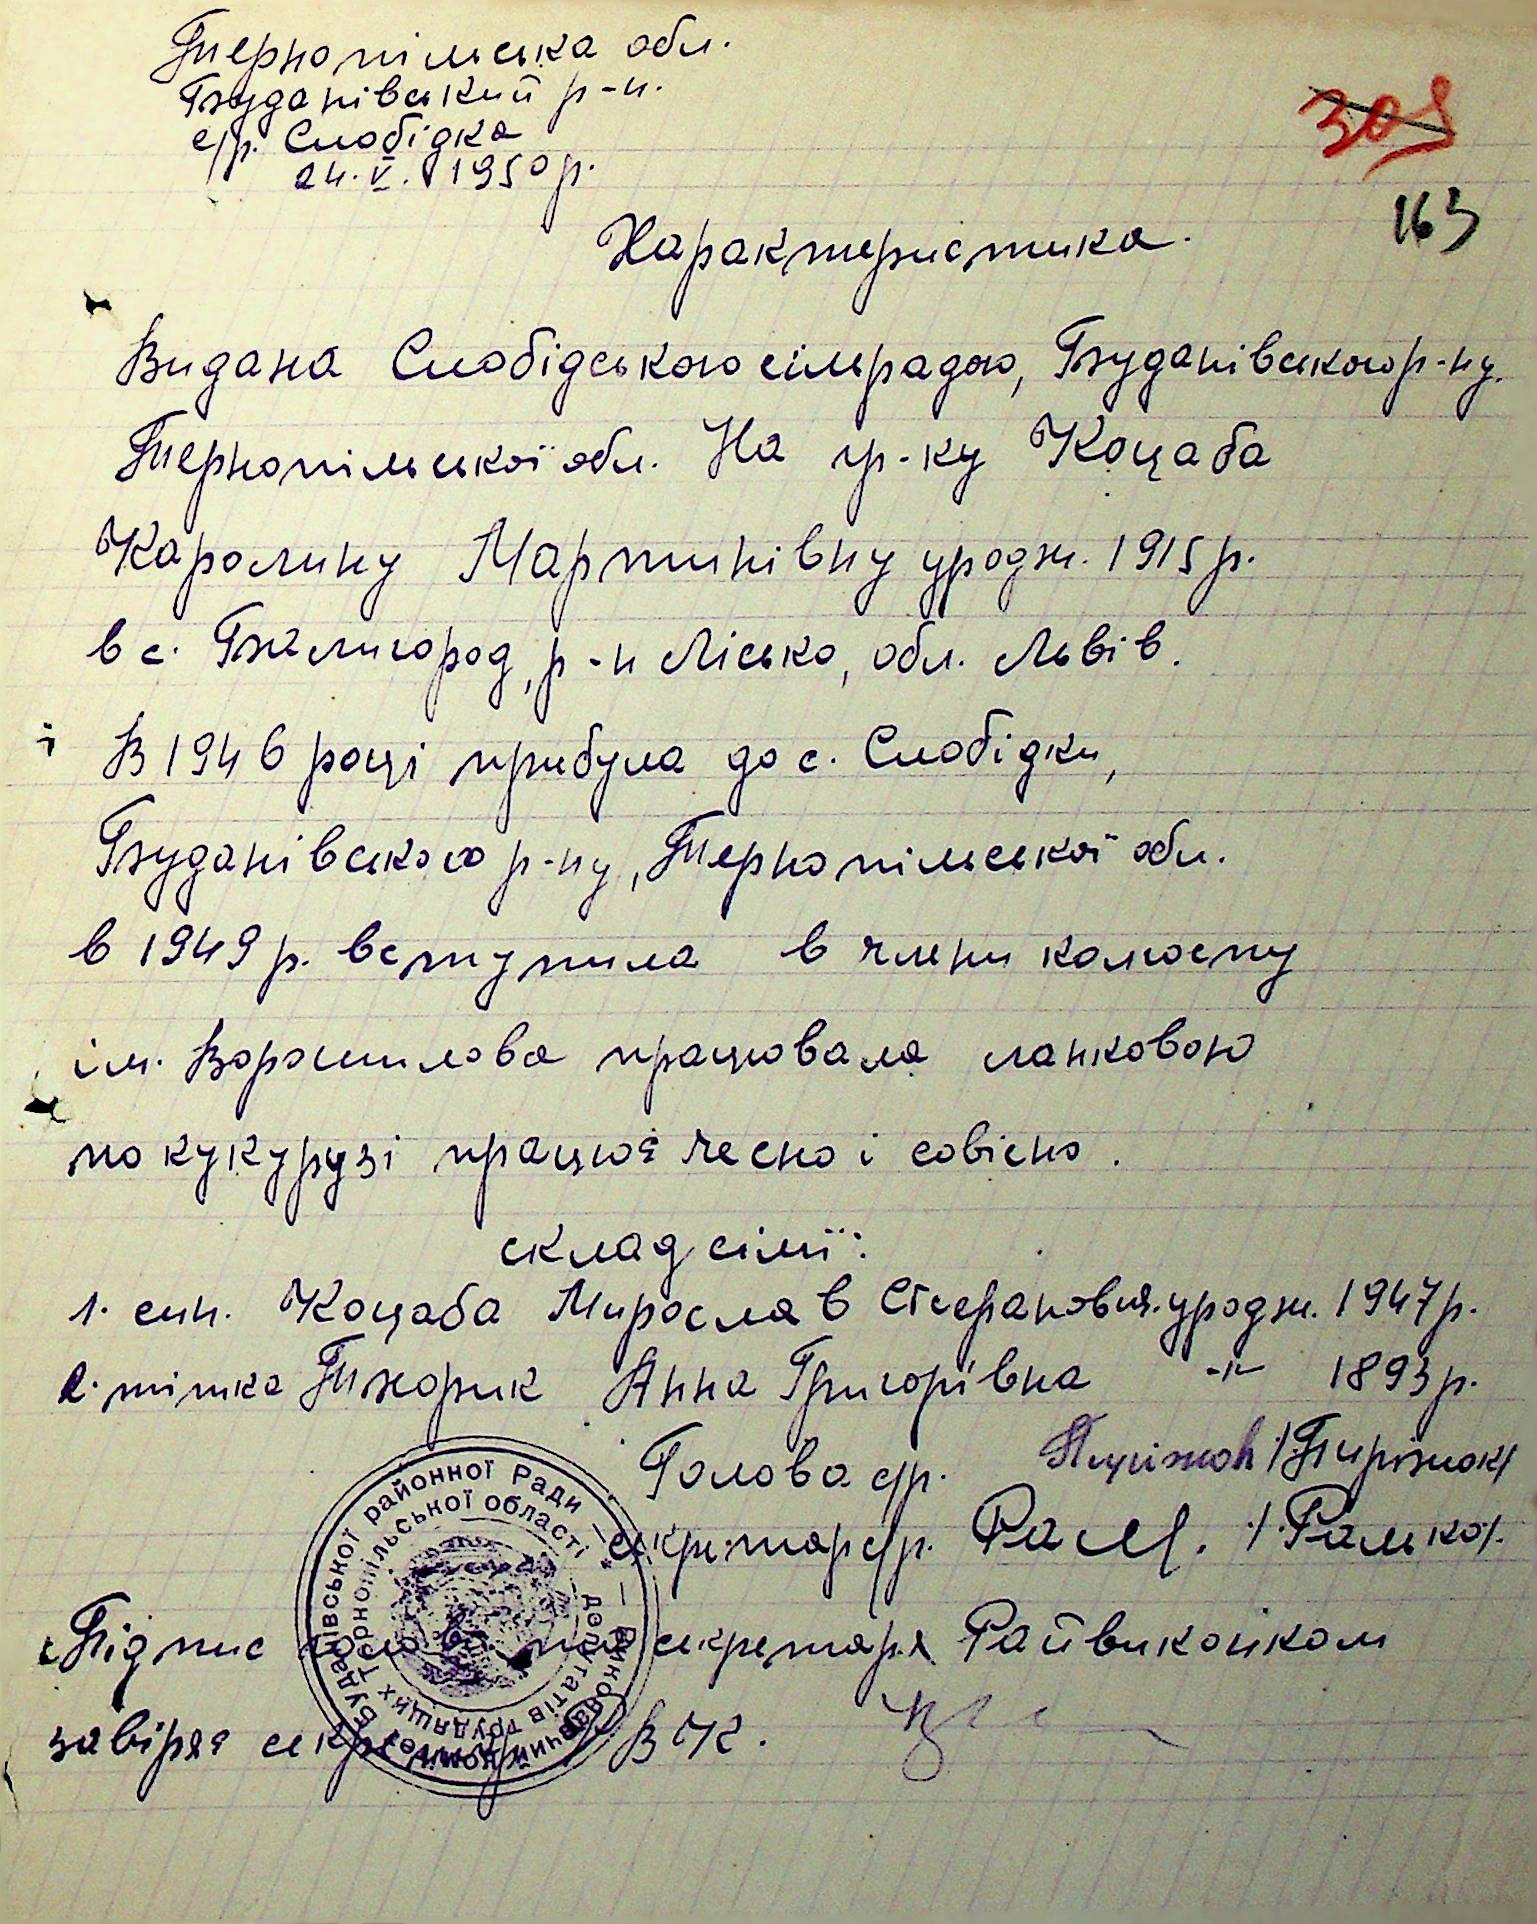 Тернопільська обл.
Буданівський р-н.
с/р. Слобідка
24.V.1950р.
309
163
Характеристика.
Видана Слобідською сільрадою, Буданівського р-ну.
Тернопільської обл. На гр-ку Коцаба
Каролину Мартинівну уродж. 1915р.
в с. Балигород, р-н Лісько, обл. Львів.
В 1946 році прибула до с. Слобідки,
Буданівського р-ну, Тернопільської обл.
в 1949 р. вступила в члени колгоспу
ім. Ворошилова працювала ланковою
по кукурузі працює чесно і совісно.
склад сімї:
1. син. Коцаба Мирослав Стефанович. уродж. 1947р.
2. тітка Тихорик Анна Григорівна -"- 1893р.
Голова с/р.
секретар с/р. /Ралько/.
Підпис голови та секретаря Райвиконком
завіряє секретар РВК.
Виконавчий комітет Буданівської районної Ради
депутатів трудящих Тернопільської області